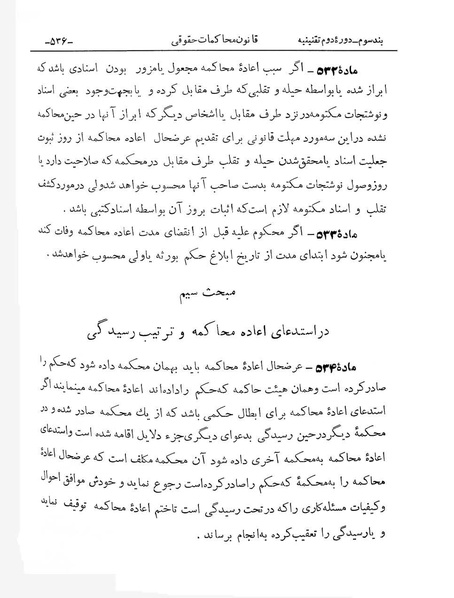 بند سوم ـ دورهٔ دوم تقنینیه قانون محاکمات حقوقی ـ۵۳۶ـ
مادهٔ ۵۳۲ ـ اگر سبب اعادهٔ محاکمه مجعول یا مزور بودن اسنادی باشد که
ابراز شده یا بواسطه حیله و تقلبی که طرف مقابل کرده و یا بجهت وجود بعضی اسناد
و نوشتجات مکتومه در نزد طرف مقابل یا اشخاص دیگر که ابراز آنها در حین محاکمه
نشده در این سه مورد مهلت قانونی برای تقدیم عرضحال اعاده محاکمه از روز ثبوت
جعلیت اسناد یا محقق شدن حیله و تقلب طرف مقابل در محکمه که صلاحیت دارد یا
روز وصول نوشتجات مکتومه بدست صاحب آنها محسوب خواهد شد ولی در مورد کشف
تقلب و اسناد مکتومه لازم است که اثبات بروز آن بواسطه اسناد کتبی باشد .
مادهٔ ۵۳۳ ـ اگر محکوم علیه قبل از انقضای مدت اعاده محاکمه وفات کند
یا مجنون شود ابتدای مدت از تاریخ ابلاغ حکم بورثه یا ولی محسوب خواهد شد .
مبحث سیم
در استدعای اعاده محاکمه و ترتیب رسیدگی
مادهٔ ۵۳۴ ـ عرضحال اعادهٔ محاکمه باید بهمان محکمه داده شود که حکم را
صادر کرده است و همان هیئت حاکمه که حکم را داده اند اعادهٔ محاکمه مینمایند اگر
استدعای اعادهٔ محاکمه برای ابطال حکمی باشد که از یك محکمه صادر شده و در
محکمهٔ دیگر در حین رسیدگی بدعوای دیگری جزء دلایل اقامه شده است و استدعای
اعادهٔ محاکمه به محکمه آخری داده شود آن محکمه مکلف است که عرضحال اعادهٔ
محاکمه را به محکمهٔ که حکم را صادر کرده است رجوع نماید و خودش موافق احوال
و کیفیات مسئله کاری را که در تحت رسیدگی است تا ختم اعادهٔ محاکمه توقیف نماید
و یا رسیدگی را تعقیب کرده به انجام برساند .